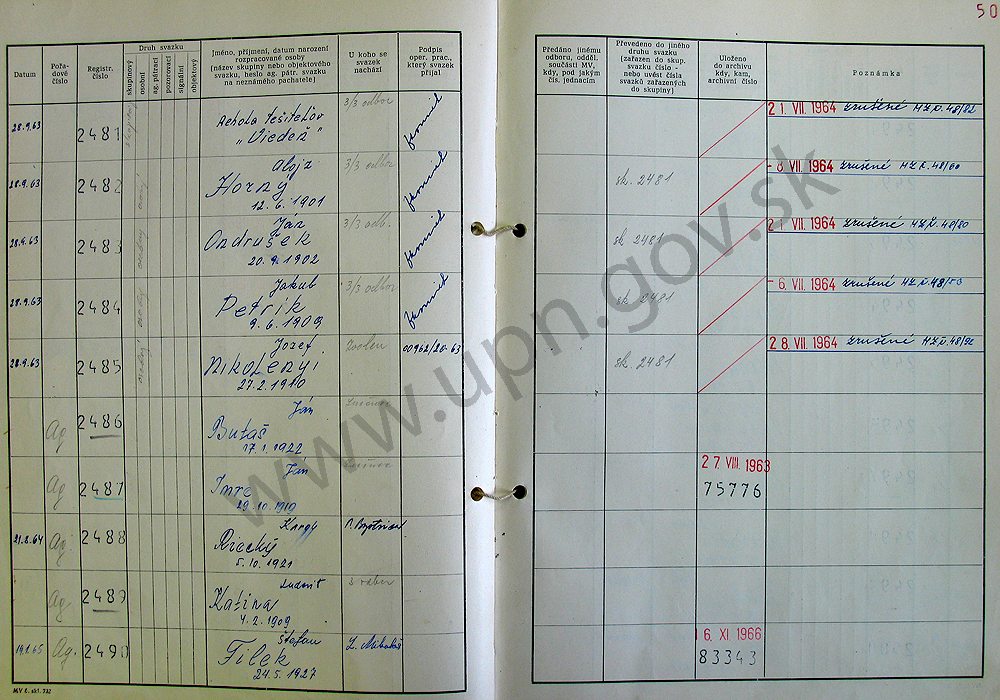 50
Datum
Pořadové číslo
Registr. číslo
Druh svazku
skupinový
osobní
ag. pátrací
pozorovací
signální
objektový
Jméno, příjmení, datum narození
rozpracované osoby
(název skupiny nebo objektového
svazku, heslo ag. pátr. svazku
na neznámého pachatele)
U koho se
svazek
nachází
Podpis
oper. prac.,
který svazek
přijal
Předáno jinému
odboru, odděl.
součásti MV,
kdy, pod jakým
čís. jednacím
Převedeno do jiného
druhu svazku
(zařazen do skup.
svazku číslo -
nebo uvést čísla
svazků zařazených
do skupiny)
Uloženo
do archivu
kdy, kam,
archivní číslo
Poznámka
28.9.63 2481 „Viedeň" 3/3 odbor
21. VII. 1964 zrušené MZ.č.48/82
28.9.63 2482 Alojz
Horný
12.6.1901 3/3 odbor
sk. 2481 8 VII. 1964 zrušené MZ.č.48/60
28.9.63 2483 Ján
Ondrušek
20.9.1902 3/3 odb.
sk 2481 21. VII. 1964 zrušené MZ.č.48/80
28.9.63 2484 Jakub
Petrík
9.6.1909 3/3 odbor
sk 2481 6. VII. 1964 zrušené MZ.č.48/53
28.9.63 2485 Jozef
Nikolényi
27.2.1910 Zvolen 00962/20-63
sk. 2481 28. VII. 1964 zrušené MZ.č.48/92
Ag. 2486 Ján
Butaš
17.1.1922 Lučenec
Ag 2487 Ján
Imre
29.10.1919 Lučenec
27. VIII. 1963
75776
21.2.64 Ag. 2488
Riecky
5.10.1921
Ag. 2489 Ľudovít
Katina
4.2.1909
19.1.65 Ag. 2490 Štefan
Filek
24.5.1927 L. Mikuláš
16. XI. 1966
83343
MV č. skl. 732
www.upn.gov.sk